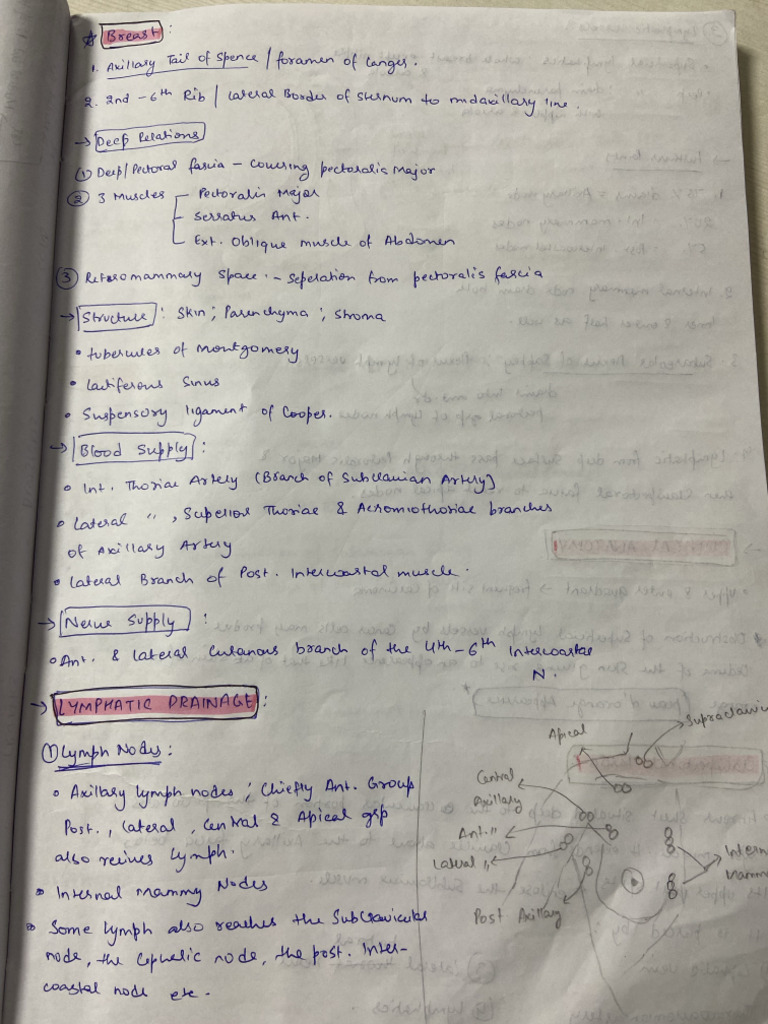 ☆ Breast :
1. Axillary Tail of Spence / foramen of Langer.
2. 2nd - 6th Rib / Lateral Border of sternum to midaxillary line.
→ Deep Relations
① Deep/Pectoral fascia - Covering pectoralis Major
② 3 Muscles - Pectoralis Major
- Serratus Ant.
- Ext. Oblique muscle of Abdomen
③ Retromammary space. - seperation from pectoralis fascia
→ Structure : Skin ; Parenchyma ; Stroma
• tubercules of Montgomery
• Lactiferous Sinus
• Suspensory ligament of Cooper.
→ Blood Supply :
• Int. Thoriac Artery (Branch of Subclavian Artery)
• Lateral " , Superior Thoriac & Acromiothoriac branches
of Axillary Artery
• Lateral Branch of Post. Intercoastal muscle.
→ Nerve Supply :
• Ant. & lateral cutanous branch of the 4th - 6th Intercoastal
N.
→ LYMPHATIC DRAINAGE :
① Lymph Nodes :
• Axillary lymph nodes ; Chiefly Ant. Group
Post., Lateral, Central & Apical grp
also recives lymph.
• Internal Mammy Nodes
• Some lymph also reaches the Subclavicular
node, the Cephelic node, the post. Inter-
coastal node etc.
Apical
Supraclavic
Central
Axillary
Ant. "
Lateral "
Post Axillary
Intern
Mamm